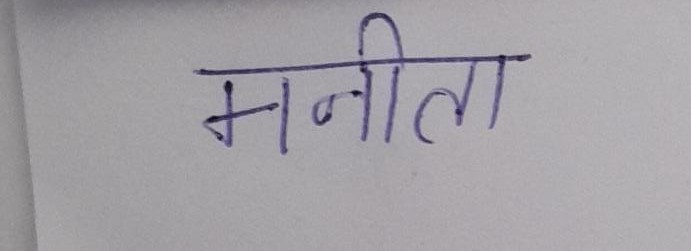 मनीता